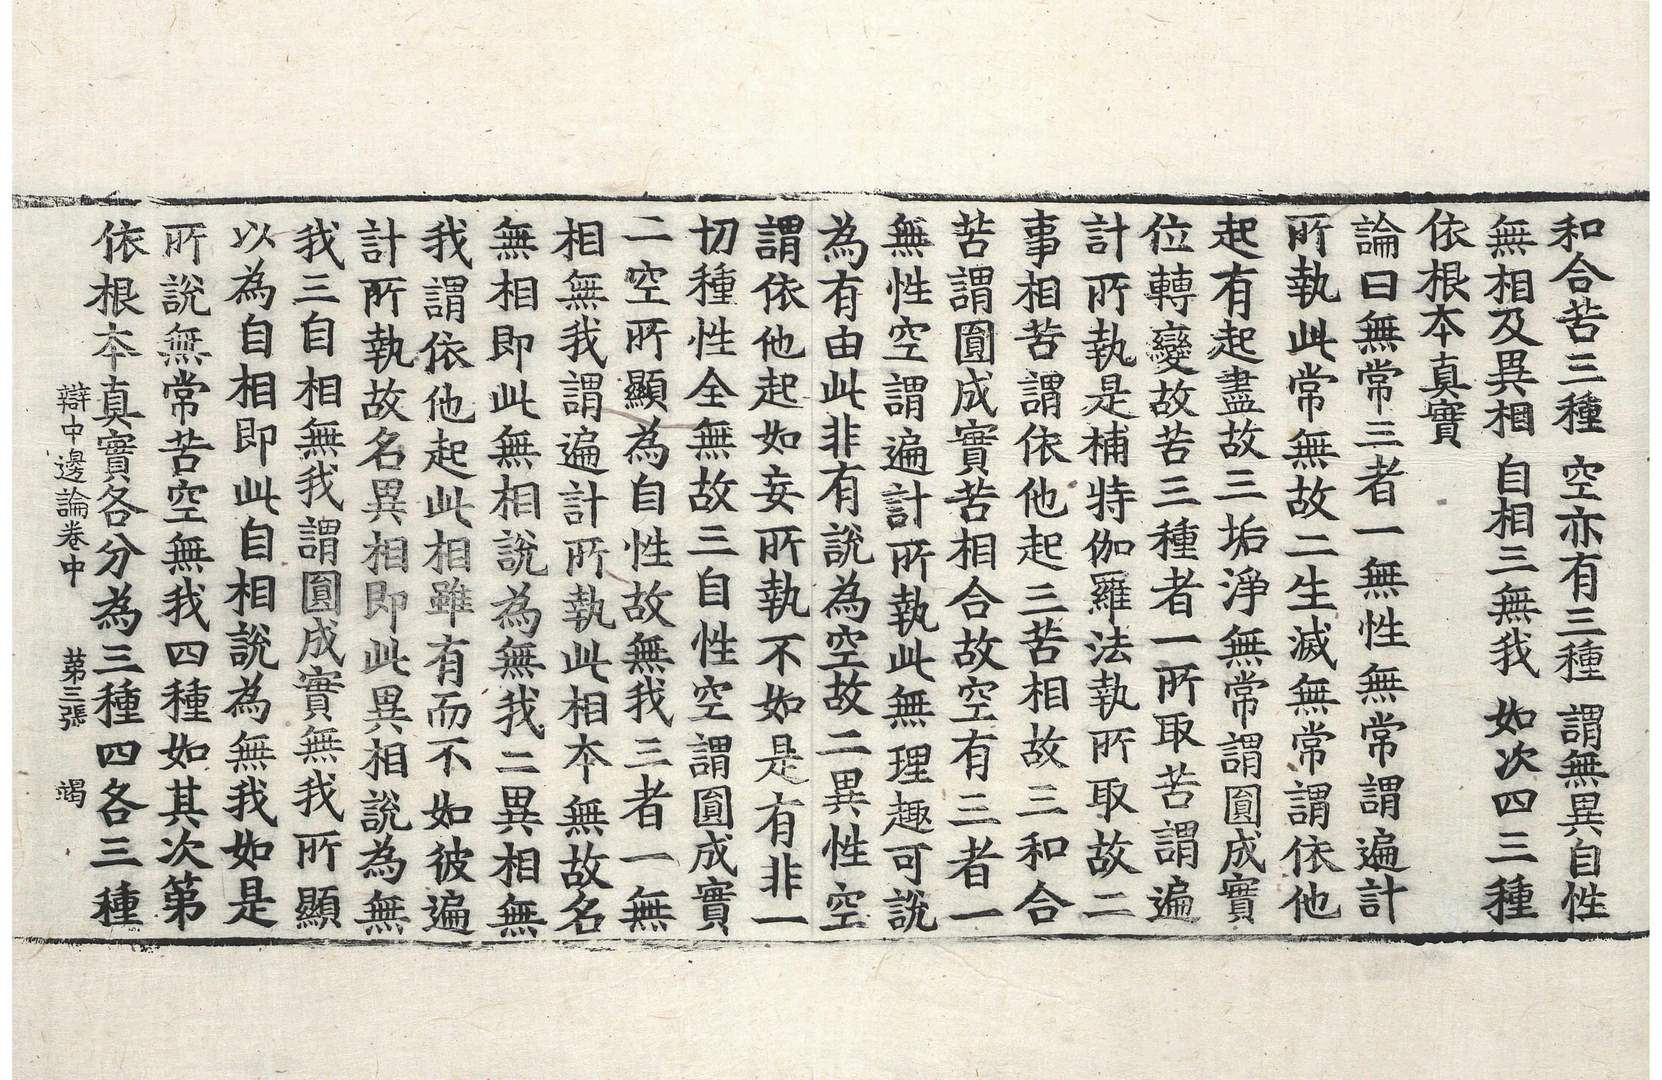 和合苦三種 空亦有三種 謂無異自性
無相及異相 自相三無我 如次四三種
依根本真實
論曰無常三者一無性無常謂遍計
所執此常無故二生滅無常謂依他
起有起盡故三垢淨無常謂圓成實
位轉變故苦三種者一所取苦謂遍
計所執是補特伽羅法執所取故二
事相苦謂依他起三苦相故三和合
苦謂圓成實苦相合故空有三者一
無性空謂遍計所執此無理趣可說
為有由此非有說為空故二異性空
謂依他起如妄所執不如是有非一
切種性全無故三自性空謂圓成實
二空所顯為自性故無我三者一無
相無我謂遍計所執此相本無故名
無相即此無相說為無我二異相無
我謂依他起此相雖有而不如彼遍
計所執故名異相即此異相說為無
我三自相無我謂圓成實無我所顯
以為自相即此自相說為無我如是
所說無常苦空無我四種如其次第
依根本真實各分為三種四各三種
辯中邊論卷中 第三張 竭